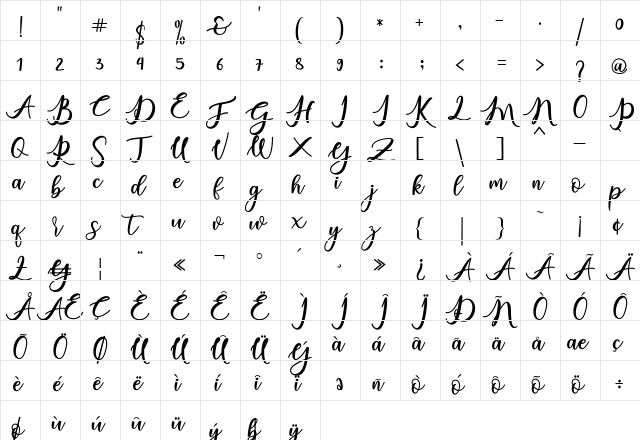 ! " # $ % & ' ( ) * + , - . / 0
1 2 3 4 5 6 7 8 9 : ; < = > ? @
A B C D E F G H I J K L M N O P
Q R S T U V W X Y Z [ \ ] ^ _
a b c d e f g h i j k l m n o p
q r s t u v w x y z { | } ~ ¡ ¢
£ ¥ ¦ ¨ « ¬ ° ´ ¸ » ¿ À Á Â Ã Ä
Å Æ Ç È É Ê Ë Ì Í Î Ï Ð Ñ Ò Ó Ô
Õ Ö Ø Ù Ú Û Ü Ý à á â ã ä å æ ç
è é ê ë ì í î ï ð ñ ò ó ô õ ö ÷
ø ù ú û ü ý þ ÿ